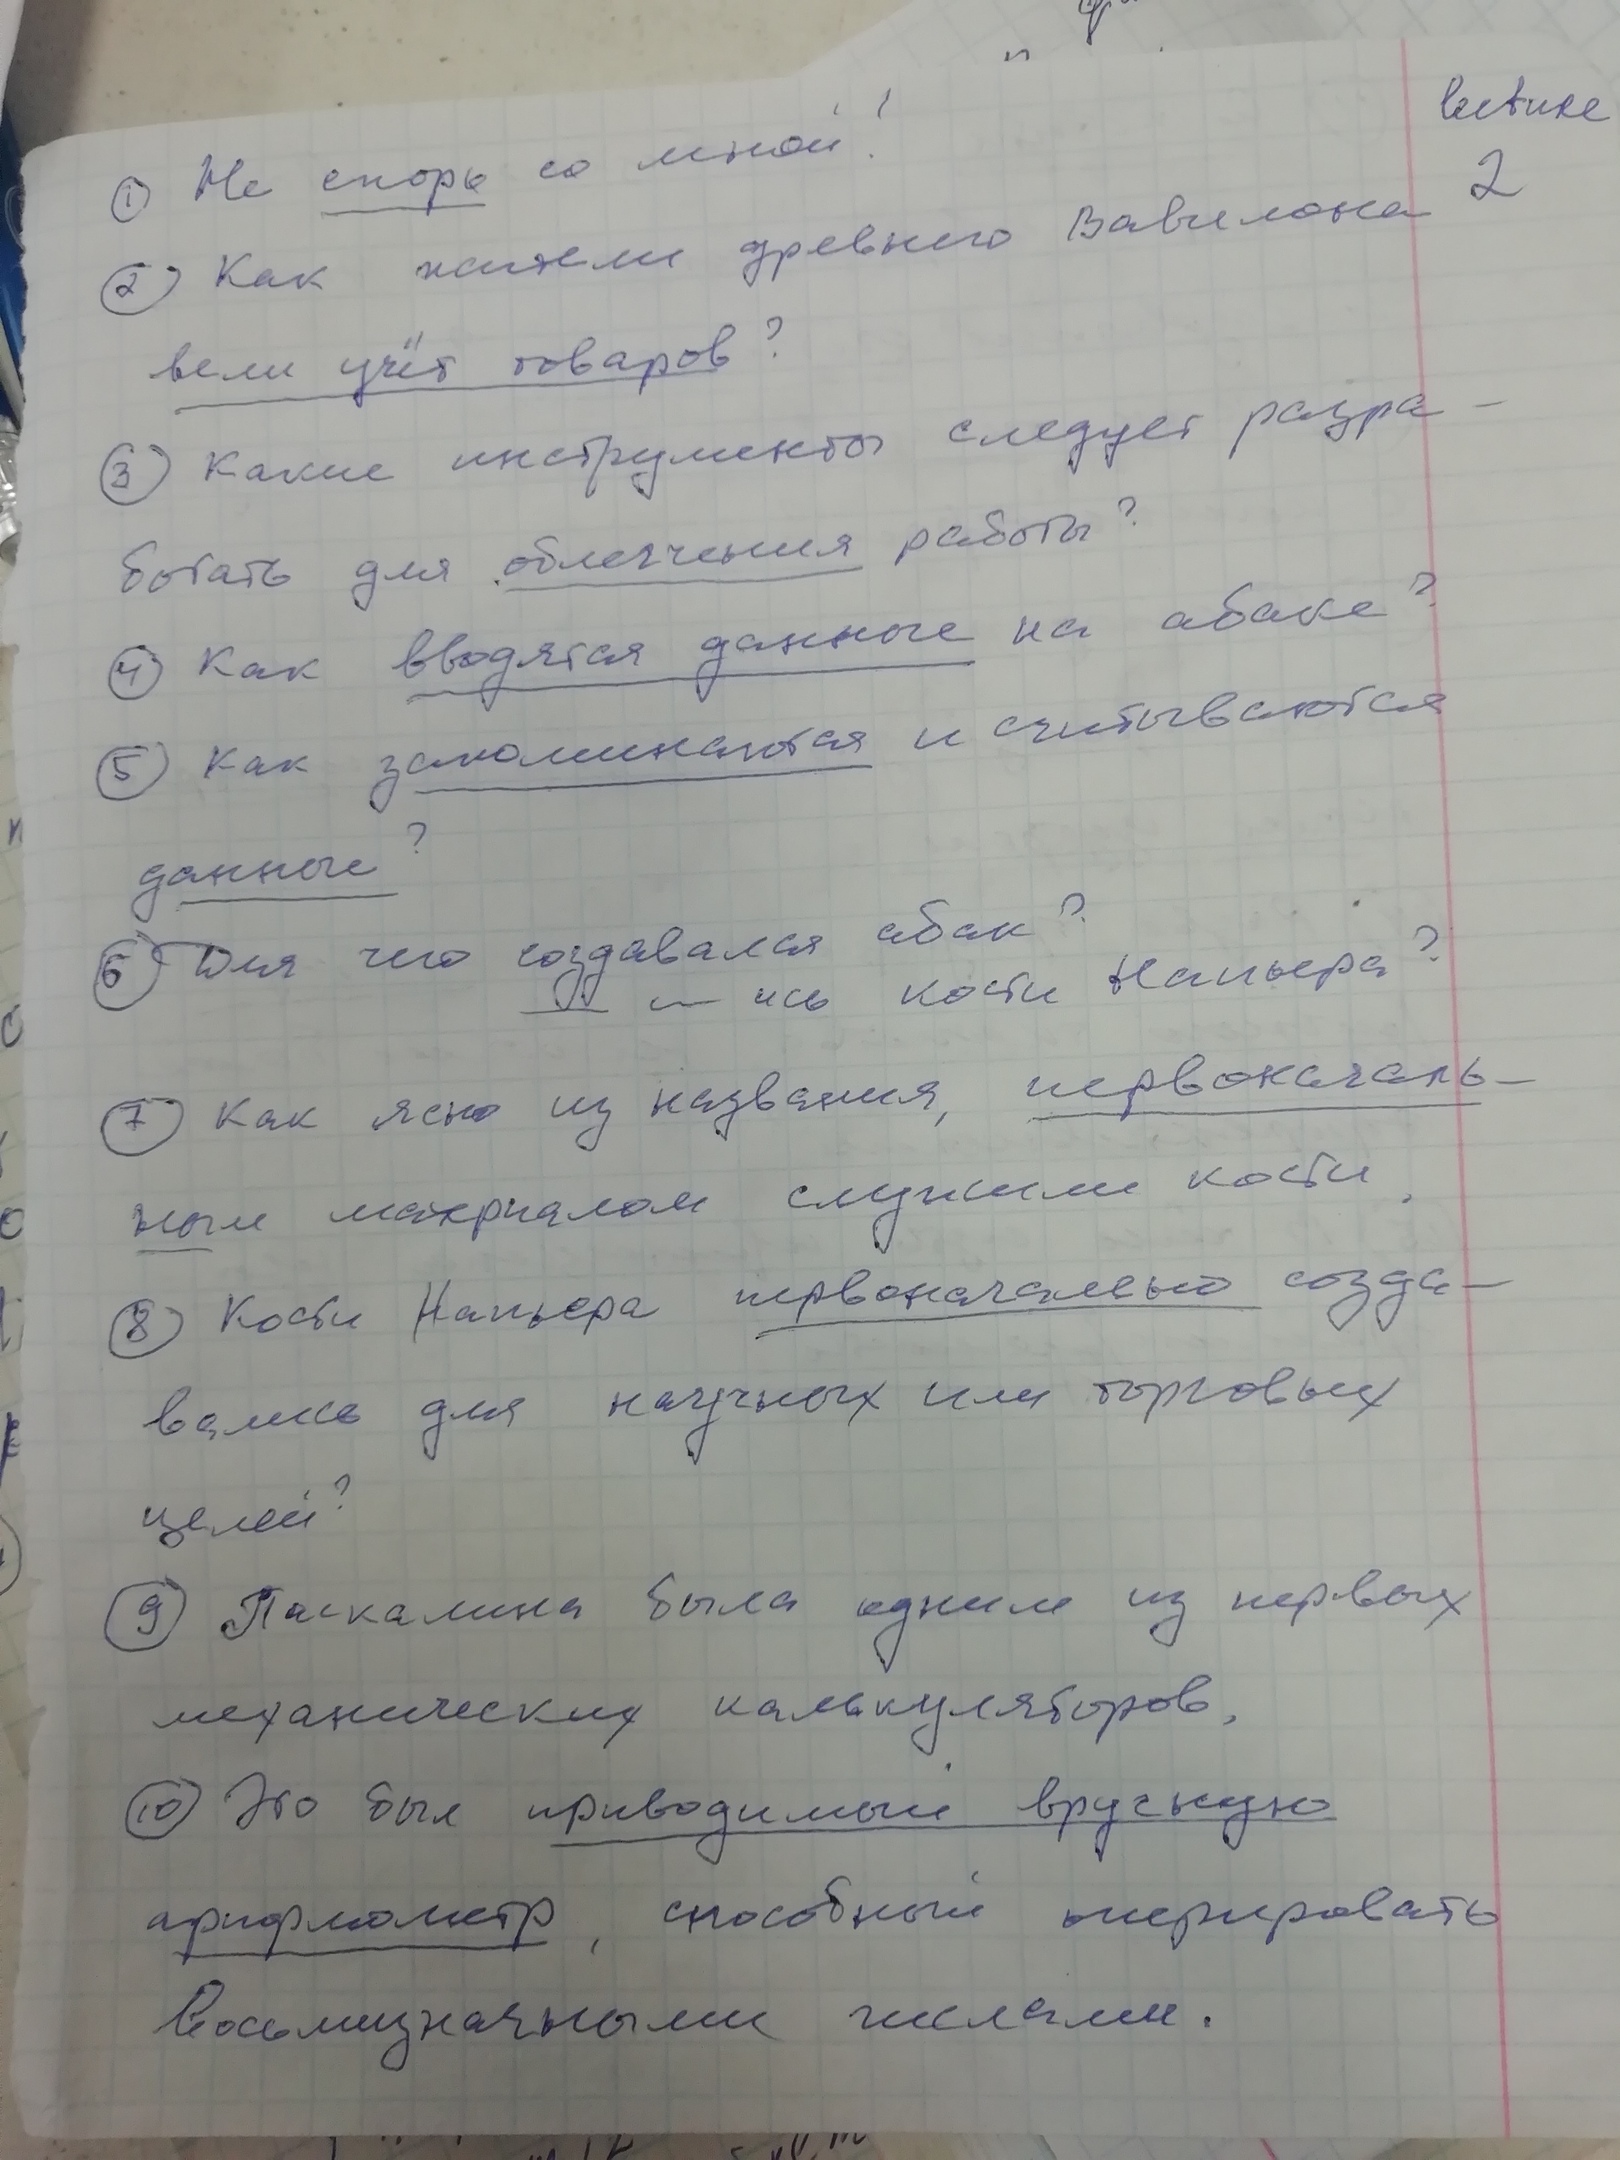 2
① Не спорь со мной!
② Как жители древнего Вавилона
вели учёт товаров?
③ Какие инструменты следует разра-
ботать для облегчения работы?
④ Как вводятся данные на абаке?
⑤ Как запоминаются и считываются
данные?
⑥ Для чего создавался абак?
—〃— ись кости Напьера?
⑦ Как ясно из названия, первоначаль-
ным материалом служили кости.
⑧ Кости Напьера первоначально созда-
вались для научных или торговых
целей?
⑨ Паскалина была одним из первых
механических калькуляторов.
⑩ Это был приводимый вручную
арифмометр, способный оперировать
восьмизначными числами.